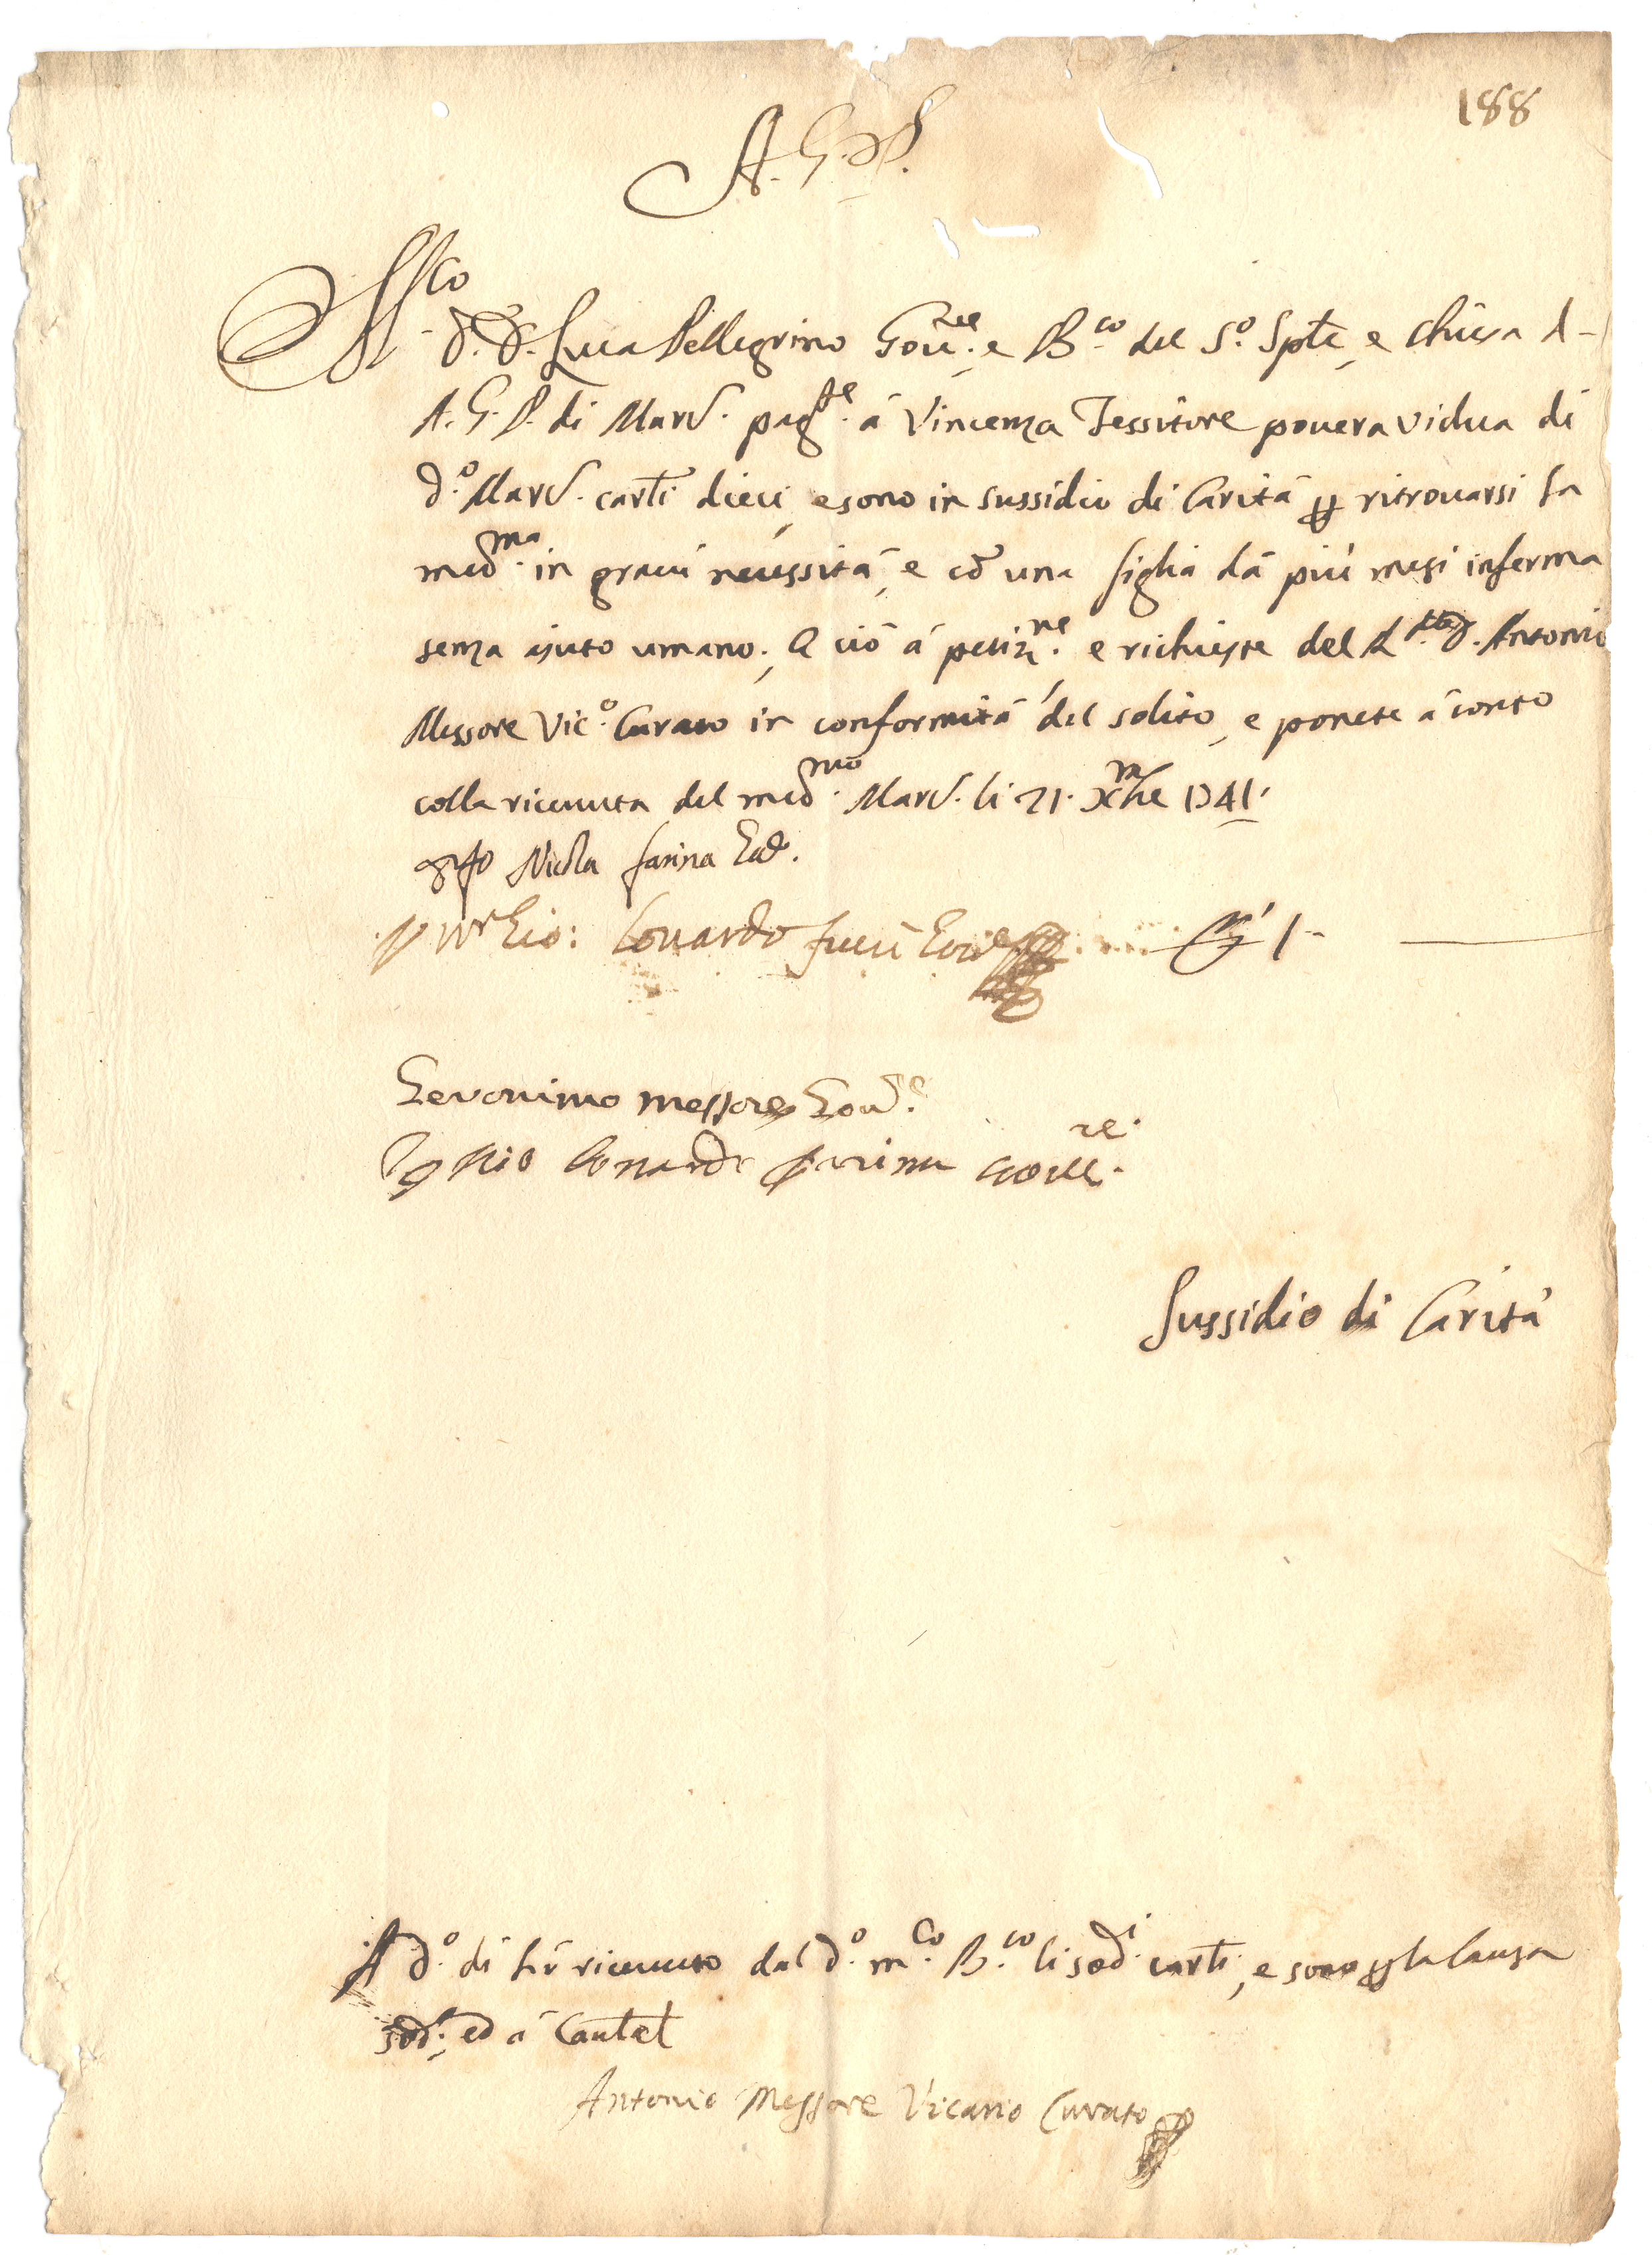 188
A. G. P.
M.co D. D. Luca Pellegrino Gou.re e B.co del S.o Sple, e Chiesa A-
A. G. P. di Marc. pag.te á Vincenza Tessitore pouera vidua di
d.o Marc. carli dieci, e sono in sussidio di Caritá per ritrouarsi la
med.ma in graui necessitá, e cō una figlia dá piú mesi inferma
senza ajuto umano; e ció á petiz.ne e richieste del R. D. Antonio
Messore Vic.o Curato in conformitá del solito, e ponete á conto
colla riceuuta del med.mo Marc. li 21. Xbre 1741.
Nicola farina
Gio: Lonardo 1-
Geronimo messore Gou.e
Lonardo farina Goue.re
Sussidio di Caritá
A d.o dí hó riceuuto dal d.o m.co B.co li sod.i carli, e sono per la causa
sod.a, ed á Cautel
Antonio Messore Vicario Curato